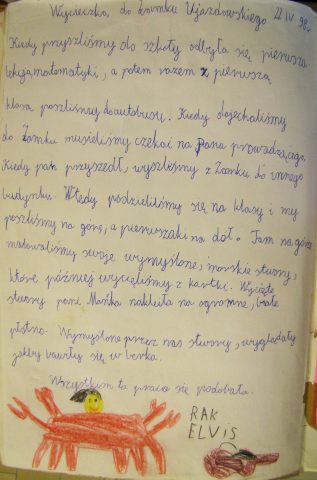 Wycieczka do Zamku Ujazdowskiego 22 IV 98r.
Kiedy przyszliśmy do szkoły odbyła się pierwsza
lekcja matematyki, a potem razem z pierwszą
klasą poszliśmy do autobusu. Kiedy dojechaliśmy
do Zamku musieliśmy czekać na Pana prowadzącego.
Kiedy pan przyszedł, wyszliśmy z Zamku do innego
budynku. Wtedy podzieliliśmy się na klasy i my
poszliśmy na górę, a pierwszaki na dół. Tam na górze
malowaliśmy swoje wymyślone, morskie stwory,
które później wycięliśmy z kartki. Wycięte
stwory pani Martka nakleiła na ogromne, białe
płótno. Wymyślone przez nas stwory, wyglądały
jakby bawiły się w berka.
Wszystkim ta praca się podobała.
RAK
ELVIS